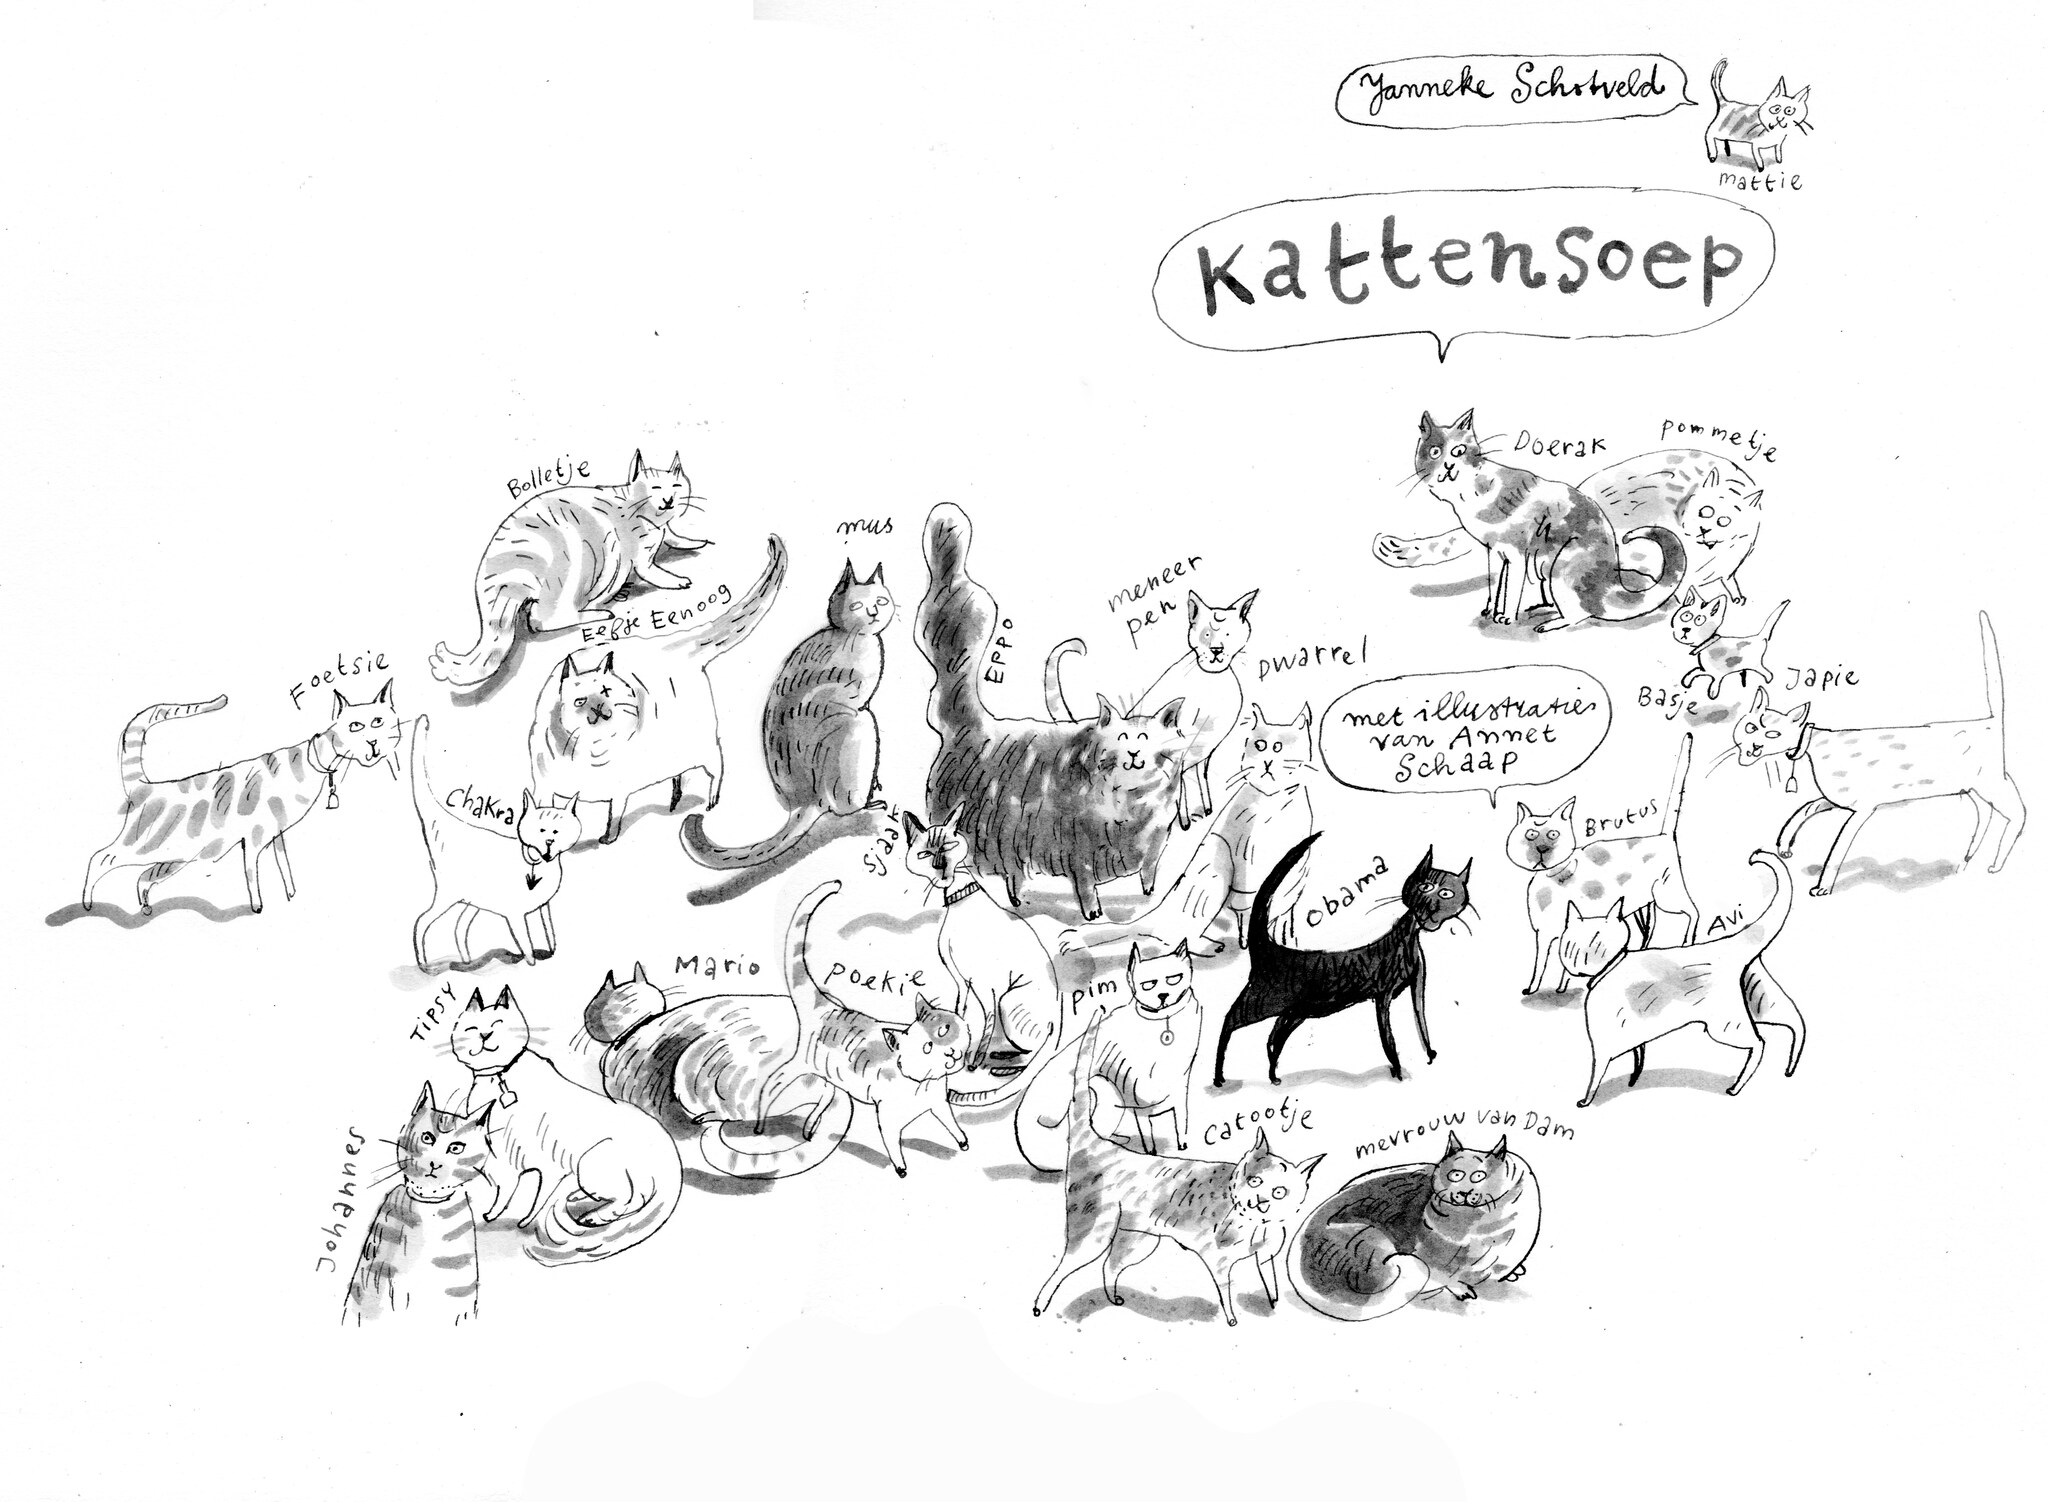 Yanneke Schotveld
mattie
Kattensoep
Doerak
pommetje
Bolletje
mus
Eefje Eenoog
meneer
pen
Eppo
Dwarrel
Foetsie
Basje
Japie
met illustraties
van Annet
Schaap
Chakra
Sjaak
Brutus
Obama
Avi
Mario
Poekie
Pim
Tipsy
Catootje
mevrouw van Dam
Johannes